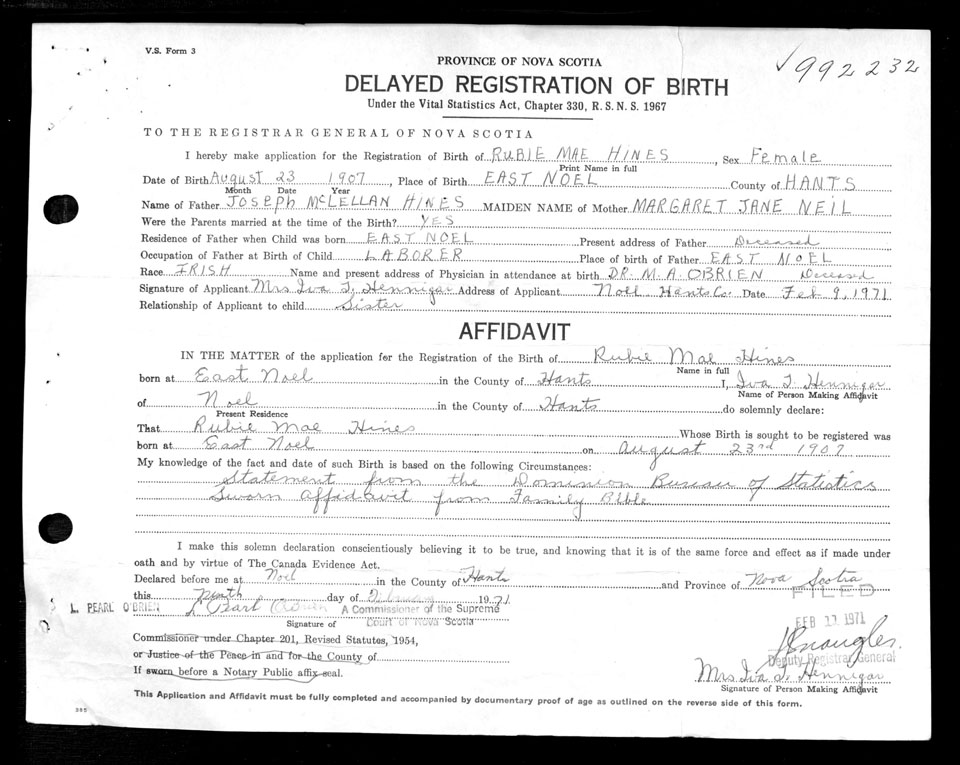 V.S. Form 3
992232
PROVINCE OF NOVA SCOTIA
DELAYED REGISTRATION OF BIRTH
Under the Vital Statistics Act, Chapter 330, R.S.N.S. 1967
TO THE REGISTRAR GENERAL OF NOVA SCOTIA
I hereby make application for the Registration of Birth of RUBIE MAE HINES, Sex Female
Print Name in full
Date of Birth August 23 1907, Place of Birth EAST NOEL County of HANTS
Month Date Year
Name of Father JOSEPH McLELLAN HINES MAIDEN NAME of Mother MARGARET JANE NEIL
Were the Parents married at the time of the Birth? YES
Residence of Father when Child was born EAST NOEL Present address of Father Deceased
Occupation of Father at Birth of Child LABORER Place of birth of Father EAST NOEL
Race IRISH Name and present address of Physician in attendance at birth DR. M.A. OBRIEN Deceased
Signature of Applicant Mrs Iva T. Hennigar Address of Applicant Noel Hants Co. Date Feb 9, 1971
Relationship of Applicant to child Sister
AFFIDAVIT
IN THE MATTER of the application for the Registration of the Birth of Rubie Mae Hines
Name in full
born at East Noel in the County of Hants I, Iva T. Hennigar
Name of Person Making Affidavit
of Noel in the County of Hants do solemnly declare:
Present Residence
That Rubie Mae Hines Whose Birth is sought to be registered was
born at East Noel on August 23rd 1907
My knowledge of the fact and date of such Birth is based on the following Circumstances:
Statement from the Dominion Bureau of Statistics
Sworn affidavit from Family Bible
I make this solemn declaration conscientiously believing it to be true, and knowing that it is of the same force and effect as if made under
oath and by virtue of The Canada Evidence Act.
Declared before me at Noel in the County of Hants and Province of Nova Scotia
FILED
this Ninth day of February 1971
L. PEARL O'BRIEN L. Pearl O'Brien A Commissioner of the Supreme
Court of Nova Scotia
FEB 1971
Signature of
Commissioner under Chapter 201, Revised Statutes, 1954,
or Justice of the Peace in and for the County of
Deputy Registrar General
If sworn before a Notary Public affix seal.
Mrs Iva T. Hennigar
Signature of Person Making Affidavit
This Application and Affidavit must be fully completed and accompanied by documentary proof of age as outlined on the reverse side of this form.